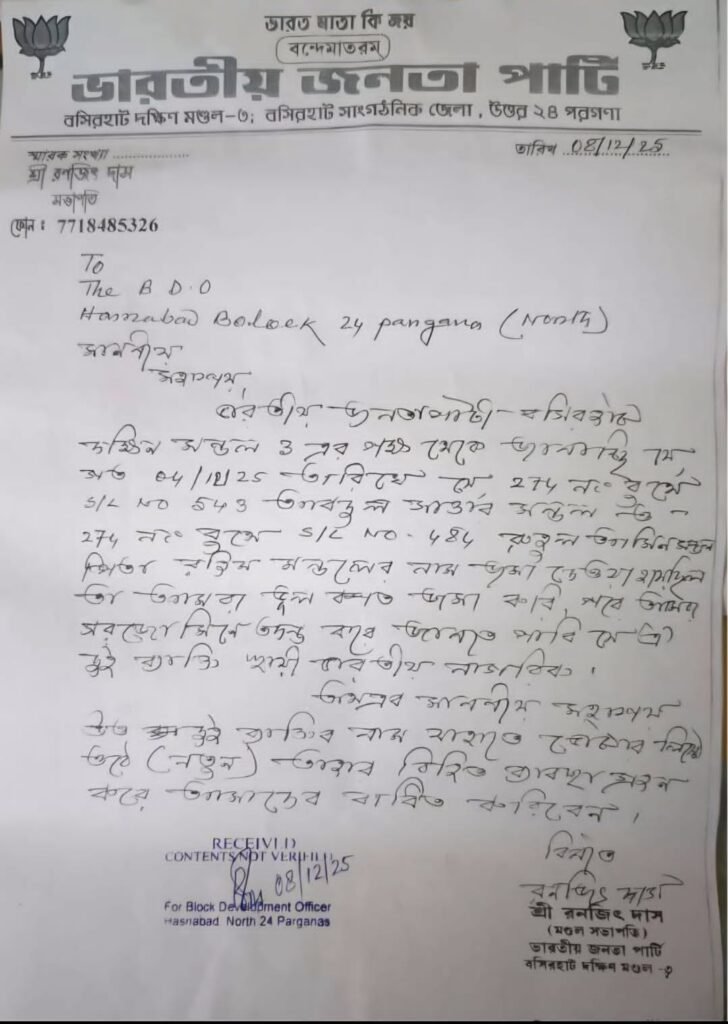 ভারত মাতা কি জয়
বন্দেমাতরম্
ভারতীয় জনতা পার্টি
বসিরহাট দক্ষিণ মণ্ডল-৩; বসিরহাট সাংগঠনিক জেলা, উত্তর ২৪ পরগণা
স্মারক সংখ্যা ..................
তারিখ 08/12/25
শ্রী রনজিৎ দাস
সভাপতি
ফোন : 7718485326
To
The B D.O
Hasnabad 24 pangana (North)
মাননীয়
মহাশয়,
ভারতীয় জনতা পার্টী - বসিরহাট
দক্ষিন মন্ডল ৩ এর পক্ষ থেকে জানাচ্ছি যে,
গত 04/12/25 তারিখে যে 274 নং বুথে
S/L NO 543 মন্ডল ও -
274 নং বুথে S/L NO. 484
পিতা মন্ডলের নাম জমা দেওয়া হয়েছিল
তা আমরা ভুল বশত জমা করি, পরে আমরা
সরজোমিনে তদন্ত করে জানতে পারি যে ঐ
দুই ব্যাক্তি স্থায়ী ভারতীয় নাগরিক।
অতএব মাননীয় মহাশয়
উক্ত দুই ব্যাক্তির নাম যাহাতে ভোটার লিষ্টে
ওঠে (নতুন) তাহার বিহিত ব্যাবস্থা গ্রহন
করে আমাদের বাধিত করিবেন।
RECEIVED
CONTENTS NOT VERIFIED
08/12/25
For Block Development Officer
Hasnabad North 24 Parganas
বিনীত
রনজিৎ দাস
শ্রী রনজিৎ দাস
(মণ্ডল সভাপতি)
ভারতীয় জনতা পার্টি
বসিরহাট দক্ষিণ মণ্ডল -৩